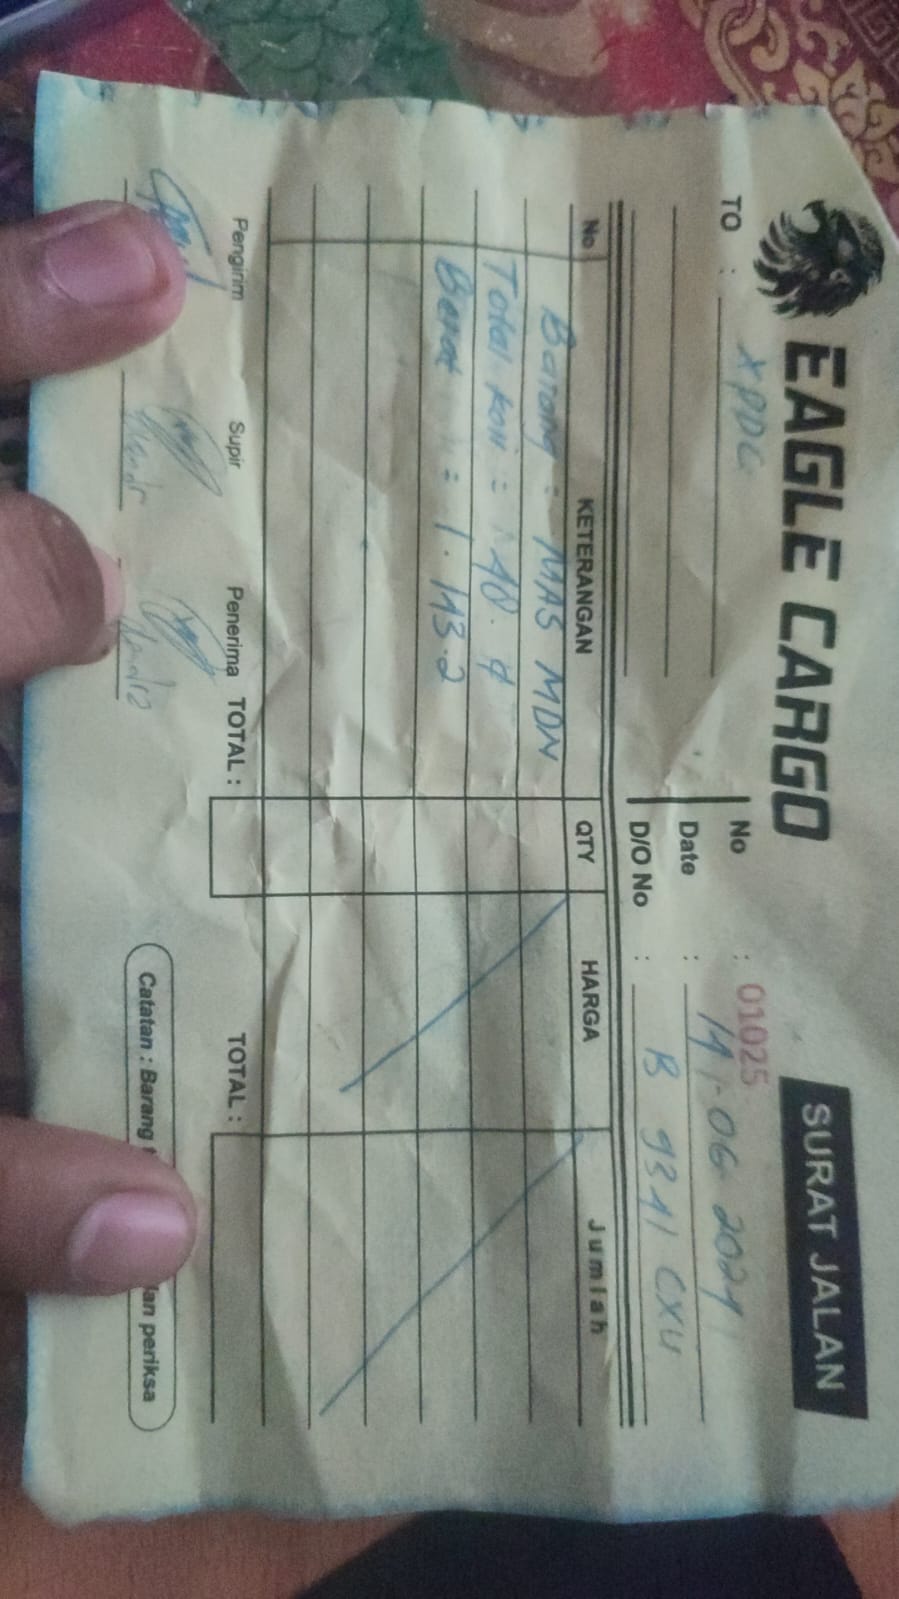 EAGLE CARGO
SURAT JALAN
TO : XPDC
No : 01025
Date : 14-06-2024
D/O No : B 9341 CXU
No KETERANGAN QTY HARGA Jumlah
Barang : MAS MDN
Total koli :
Berat : 1.113.2
TOTAL : TOTAL :
Pengirim Supir Penerima
Catatan : Barang
dan periksa